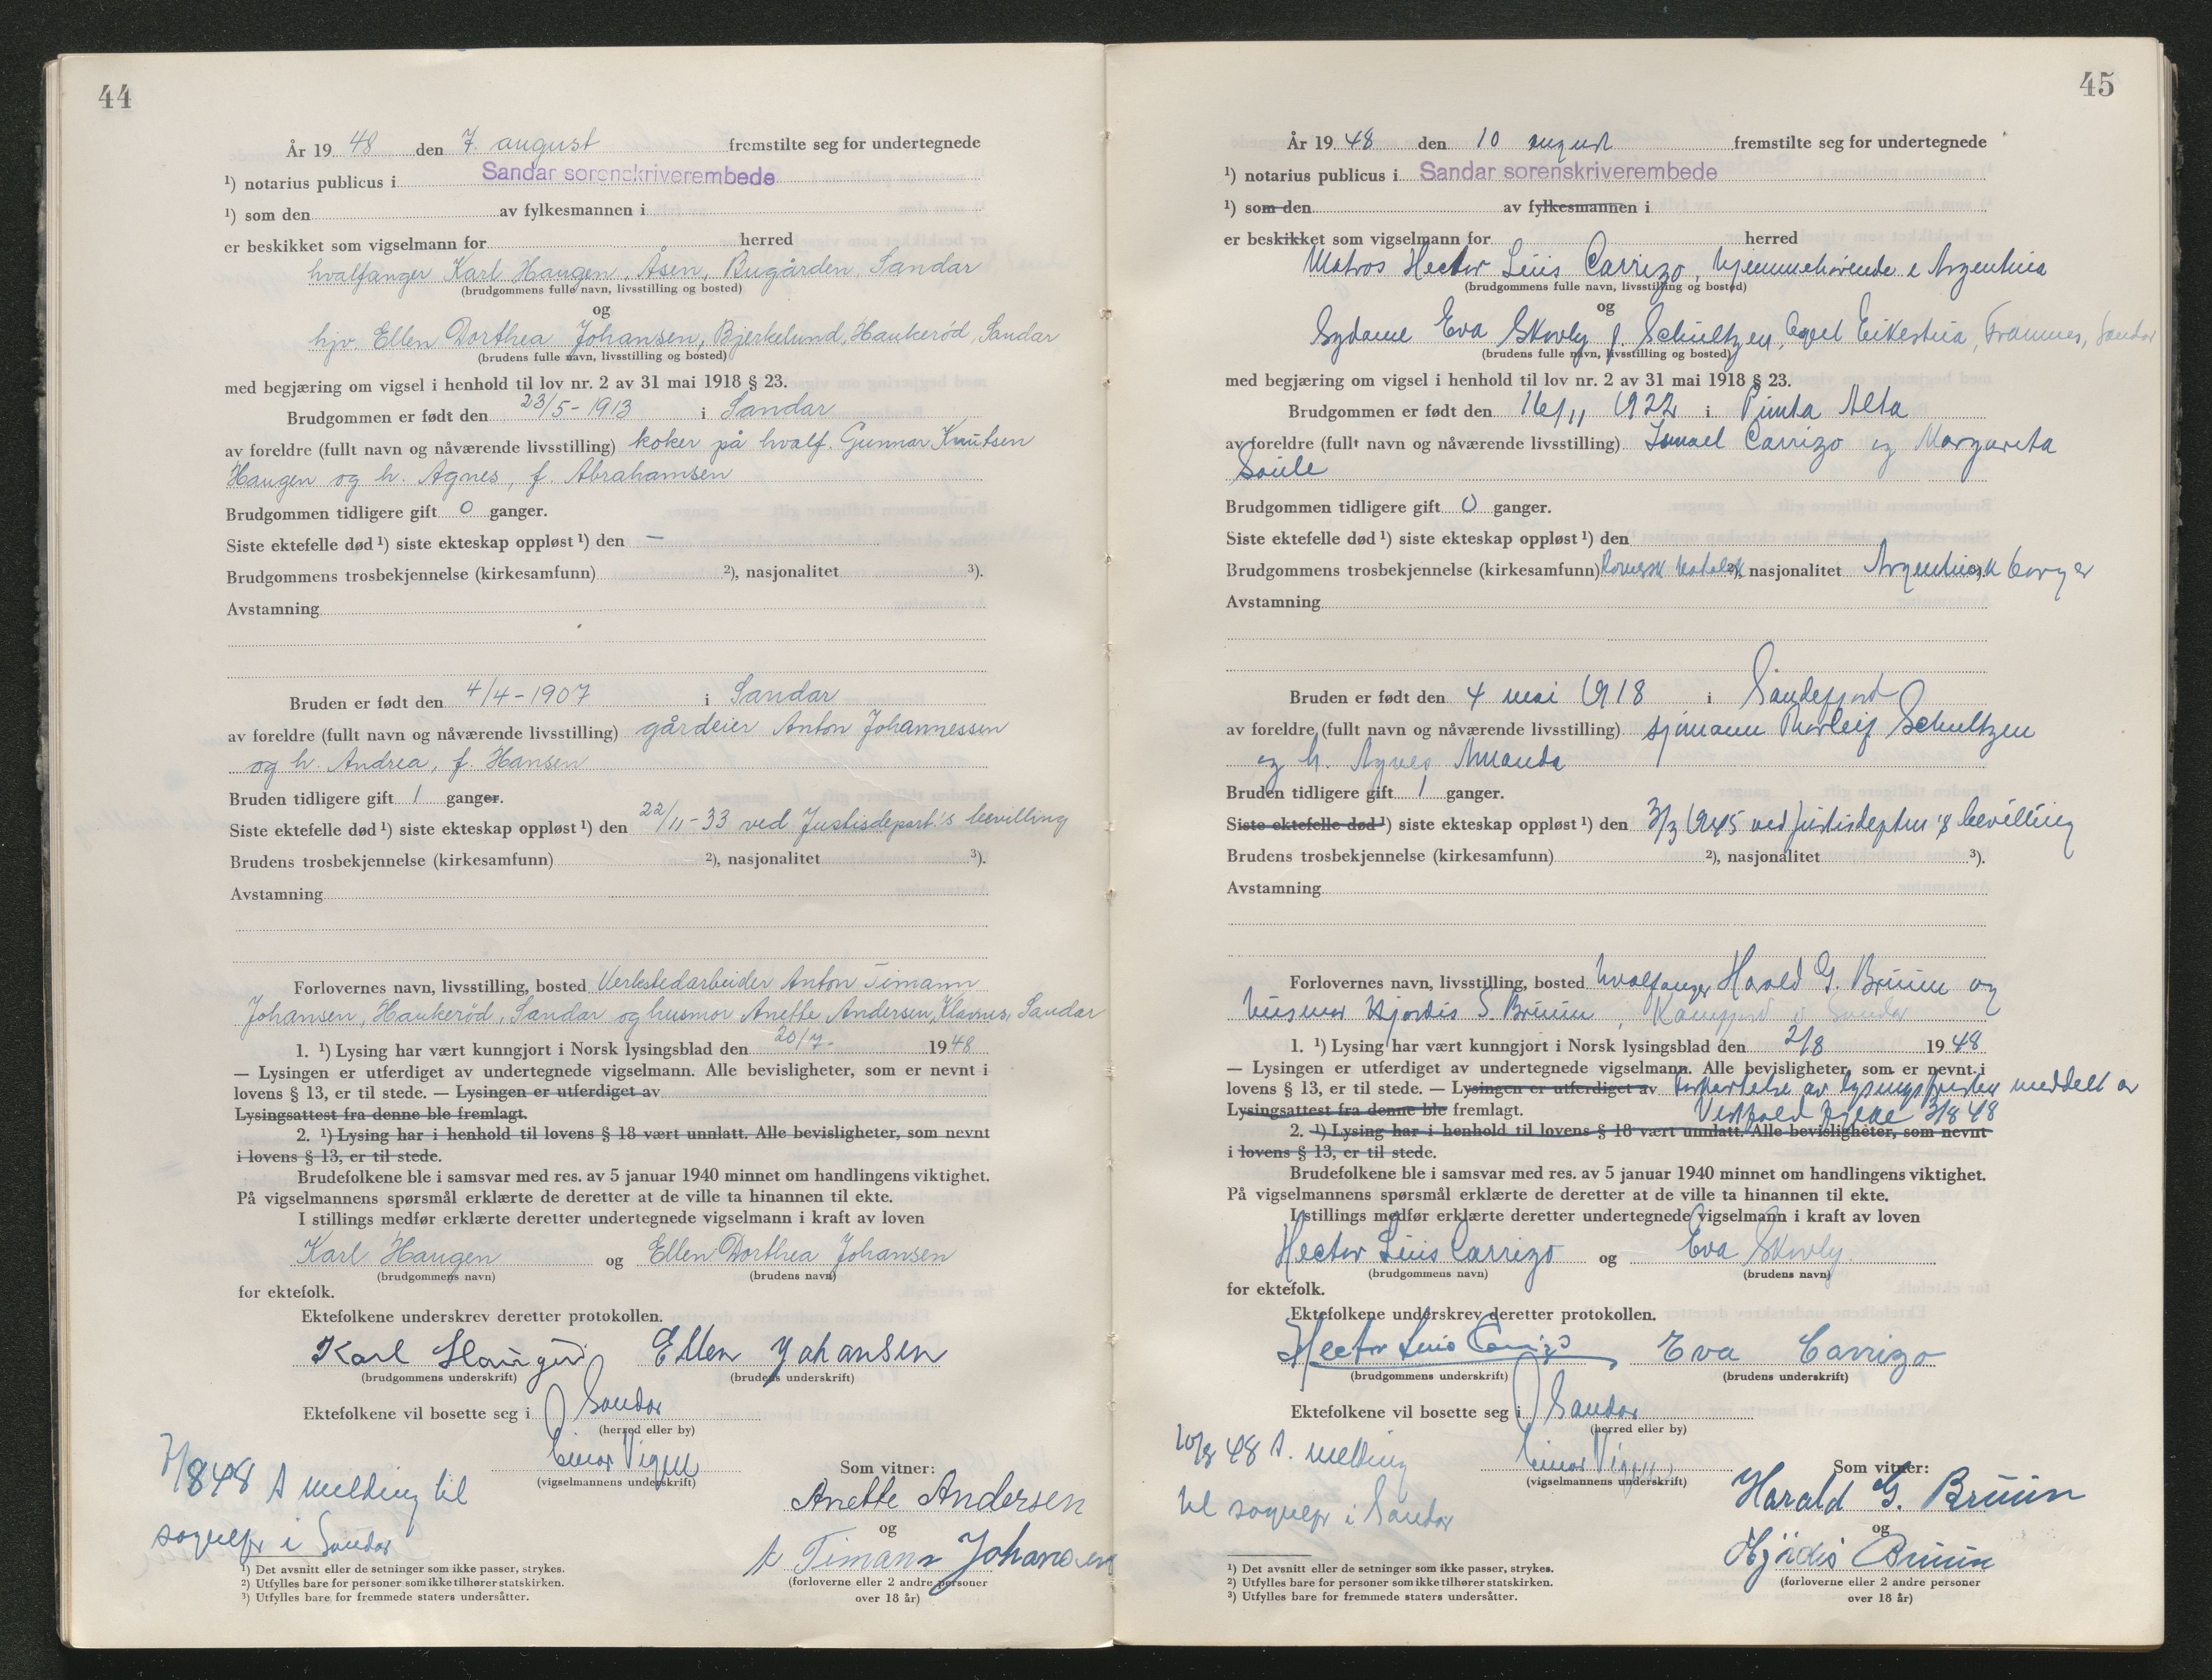 44
År 19 48 den 7. august fremstilte seg for undertegnede
¹) notarius publicus i Sandar sorenskriverembede
¹) som den av fylkesmannen i
er beskikket som vigselmann for herred
hvalfanger Karl Haugen, Åsen, Bugården, Sandar
(brudgommens fulle navn, livsstilling og bosted)
og
hjv. Ellen Dorthea Johansen, Bjerkelund, Haukerød, Sandar
(brudens fulle navn, livsstilling og bosted)
med begjæring om vigsel i henhold til lov nr. 2 av 31 mai 1918 § 23.
Brudgommen er født den 23/5-1913 i Sandar
av foreldre (fullt navn og nåværende livsstilling) koker på hvalf. Gunnar Knutsen
Haugen og h. Agnes, f. Abrahamsen
Brudgommen tidligere gift 0 ganger.
Siste ektefelle død ¹) siste ekteskap oppløst ¹) den —
Brudgommens trosbekjennelse (kirkesamfunn) ²), nasjonalitet ³).
Avstamning
Bruden er født den 4/4-1907 i Sandar
av foreldre (fullt navn og nåværende livsstilling) gårdeier Anton Johannessen
og h. Andrea, f. Hansen
Bruden tidligere gift 1 ganger.
Siste ektefelle død ¹) siste ekteskap oppløst ¹) den 22/11-33 ved Justisdepart.'s bevilling
Brudens trosbekjennelse (kirkesamfunn) ²), nasjonalitet ³).
Avstamning
Forlovernes navn, livsstilling, bosted Verkstedarbeider Anton Timann
Johansen, Haukerød, Sandar og husmor Anette Andersen, Klavnes, Sandar
1. ¹) Lysing har vært kunngjort i Norsk lysingsblad den 20/7- 19 48
— Lysingen er utferdiget av undertegnede vigselmann. Alle bevisligheter, som er nevnt i
lovens § 13, er til stede. — Lysingen er utferdiget av
Lysingsattest fra denne ble fremlagt.
2. ¹) Lysing har i henhold til lovens § 18 vært unnlatt. Alle bevisligheter, som nevnt
i lovens § 13, er til stede.
Brudefolkene ble i samsvar med res. av 5 januar 1940 minnet om handlingens viktighet.
På vigselmannens spørsmål erklærte de deretter at de ville ta hinannen til ekte.
I stillings medfør erklærte deretter undertegnede vigselmann i kraft av loven
Karl Haugen og Ellen Dorthea Johansen
(brudgommens navn) (brudens navn)
for ektefolk.
Ektefolkene underskrev deretter protokollen.
Karl Haugen Ellen Johansen
(brudgommens underskrift) (brudens underskrift)
Ektefolkene vil bosette seg i Sandar
(herred eller by)
Einar
(vigselmannens underskrift)
7/8 48 melding til
sognepr i Sandar
Som vitner:
Anette Andersen
og
A Timann Johansen
(forloverne eller 2 andre personer
over 18 år)
¹) Det avsnitt eller de setninger som ikke passer, strykes.
²) Utfylles bare for personer som ikke tilhører statskirken.
³) Utfylles bare for fremmede staters undersåtter.
45
År 19 48 den 10 august fremstilte seg for undertegnede
¹) notarius publicus i Sandar sorenskriverembede
¹) som den av fylkesmannen i
er beskikket som vigselmann for herred
Matros Hector Luis Carrizo, hjemmehørende i Argentina
(brudgommens fulle navn, livsstilling og bosted)
og
Sydame Eva Skovly f. Schultzen, Eikestua, Framnes, Sandar
(brudens fulle navn, livsstilling og bosted)
med begjæring om vigsel i henhold til lov nr. 2 av 31 mai 1918 § 23.
Brudgommen er født den 16/11 1922 i Punta Alta
av foreldre (fullt navn og nåværende livsstilling) Ismael Carrizo og Margareta
Soule
Brudgommen tidligere gift 0 ganger.
Siste ektefelle død ¹) siste ekteskap oppløst ¹) den
Brudgommens trosbekjennelse (kirkesamfunn) Romersk katolsk ²), nasjonalitet Argentinsk borger ³).
Avstamning
Bruden er født den 4 mai 1918 i Sandefjord
av foreldre (fullt navn og nåværende livsstilling) sjømann Thorleif Schultzen
og h. Agnes Amanda
Bruden tidligere gift 1 ganger.
Siste ektefelle død ¹) siste ekteskap oppløst ¹) den 3/3 1945 ved justisdeptm's bevilling
Brudens trosbekjennelse (kirkesamfunn) ²), nasjonalitet ³).
Avstamning
Forlovernes navn, livsstilling, bosted hvalfanger Harald G. Bruun og
husmor Hjørdis S. Bruun, Kamfjord i Sandar
1. ¹) Lysing har vært kunngjort i Norsk lysingsblad den 2/8 19 48
— Lysingen er utferdiget av undertegnede vigselmann. Alle bevisligheter, som er nevnt i
lovens § 13, er til stede. — Lysingen er utferdiget av forkortelse av lysingsfristen meddelt av
Lysingsattest fra denne ble fremlagt. Vestfold fylke 3/8 48
2. ¹) Lysing har i henhold til lovens § 18 vært unnlatt. Alle bevisligheter, som nevnt
i lovens § 13, er til stede.
Brudefolkene ble i samsvar med res. av 5 januar 1940 minnet om handlingens viktighet.
På vigselmannens spørsmål erklærte de deretter at de ville ta hinannen til ekte.
I stillings medfør erklærte deretter undertegnede vigselmann i kraft av loven
Hector Luis Carrizo og Eva Skovly.
(brudgommens navn) (brudens navn)
for ektefolk.
Ektefolkene underskrev deretter protokollen.
Hector Luis Carrizo Eva Carrizo
(brudgommens underskrift) (brudens underskrift)
Ektefolkene vil bosette seg i Sandar
(herred eller by)
Einar
(vigselmannens underskrift)
10/8 48 melding
til sognepr i Sandar
Som vitner:
Harald G. Bruun
og
Hjördis Bruun
(forloverne eller 2 andre personer
over 18 år)
¹) Det avsnitt eller de setninger som ikke passer, strykes.
²) Utfylles bare for personer som ikke tilhører statskirken.
³) Utfylles bare for fremmede staters undersåtter.